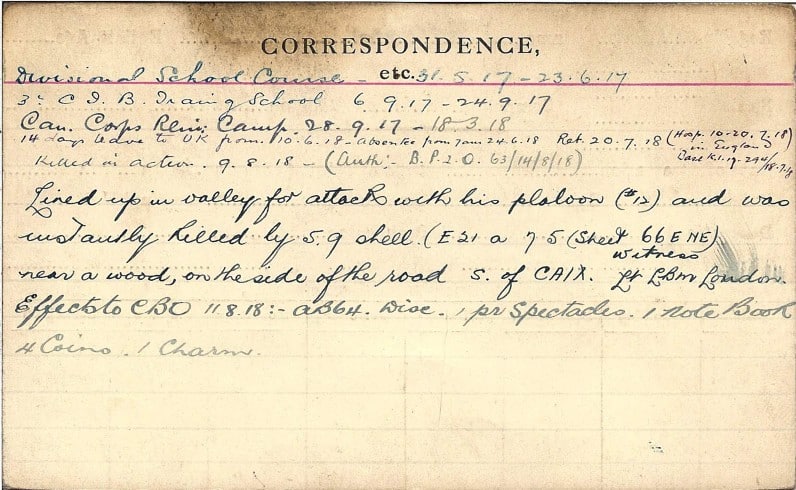 CORRESPONDENCE,
Divisional School Course - etc. 31. 5. 17 - 23. 6. 17
3rd C I. B. Training School 6 9.17 - 24.9.17
Can. Corps Rein. Camp. 28. 9. 17 - 18.3.18
14 days leave to UK from. 10.6.18 - absentee from 7am 24.6.18 Ret. 20.7.18 (Hosp. 10-20.7.18)
in England
Killed in action. 9. 8. 18 - (Auth:- B. P. 2. O. 63/14/8/18)
Lined up in valley for attack with his platoon (#12) and was
instantly killed by 5.9 shell. (E 21 a 7 5 (Sheet 66 E NE)
witness
near a wood, on the side of the road S. of CAIX. Lt LBM London.
Effects to CBO 11 8.18:- AB64. Disc. 1 pr Spectacles. 1 note Book
4 Coins. 1 Charm.